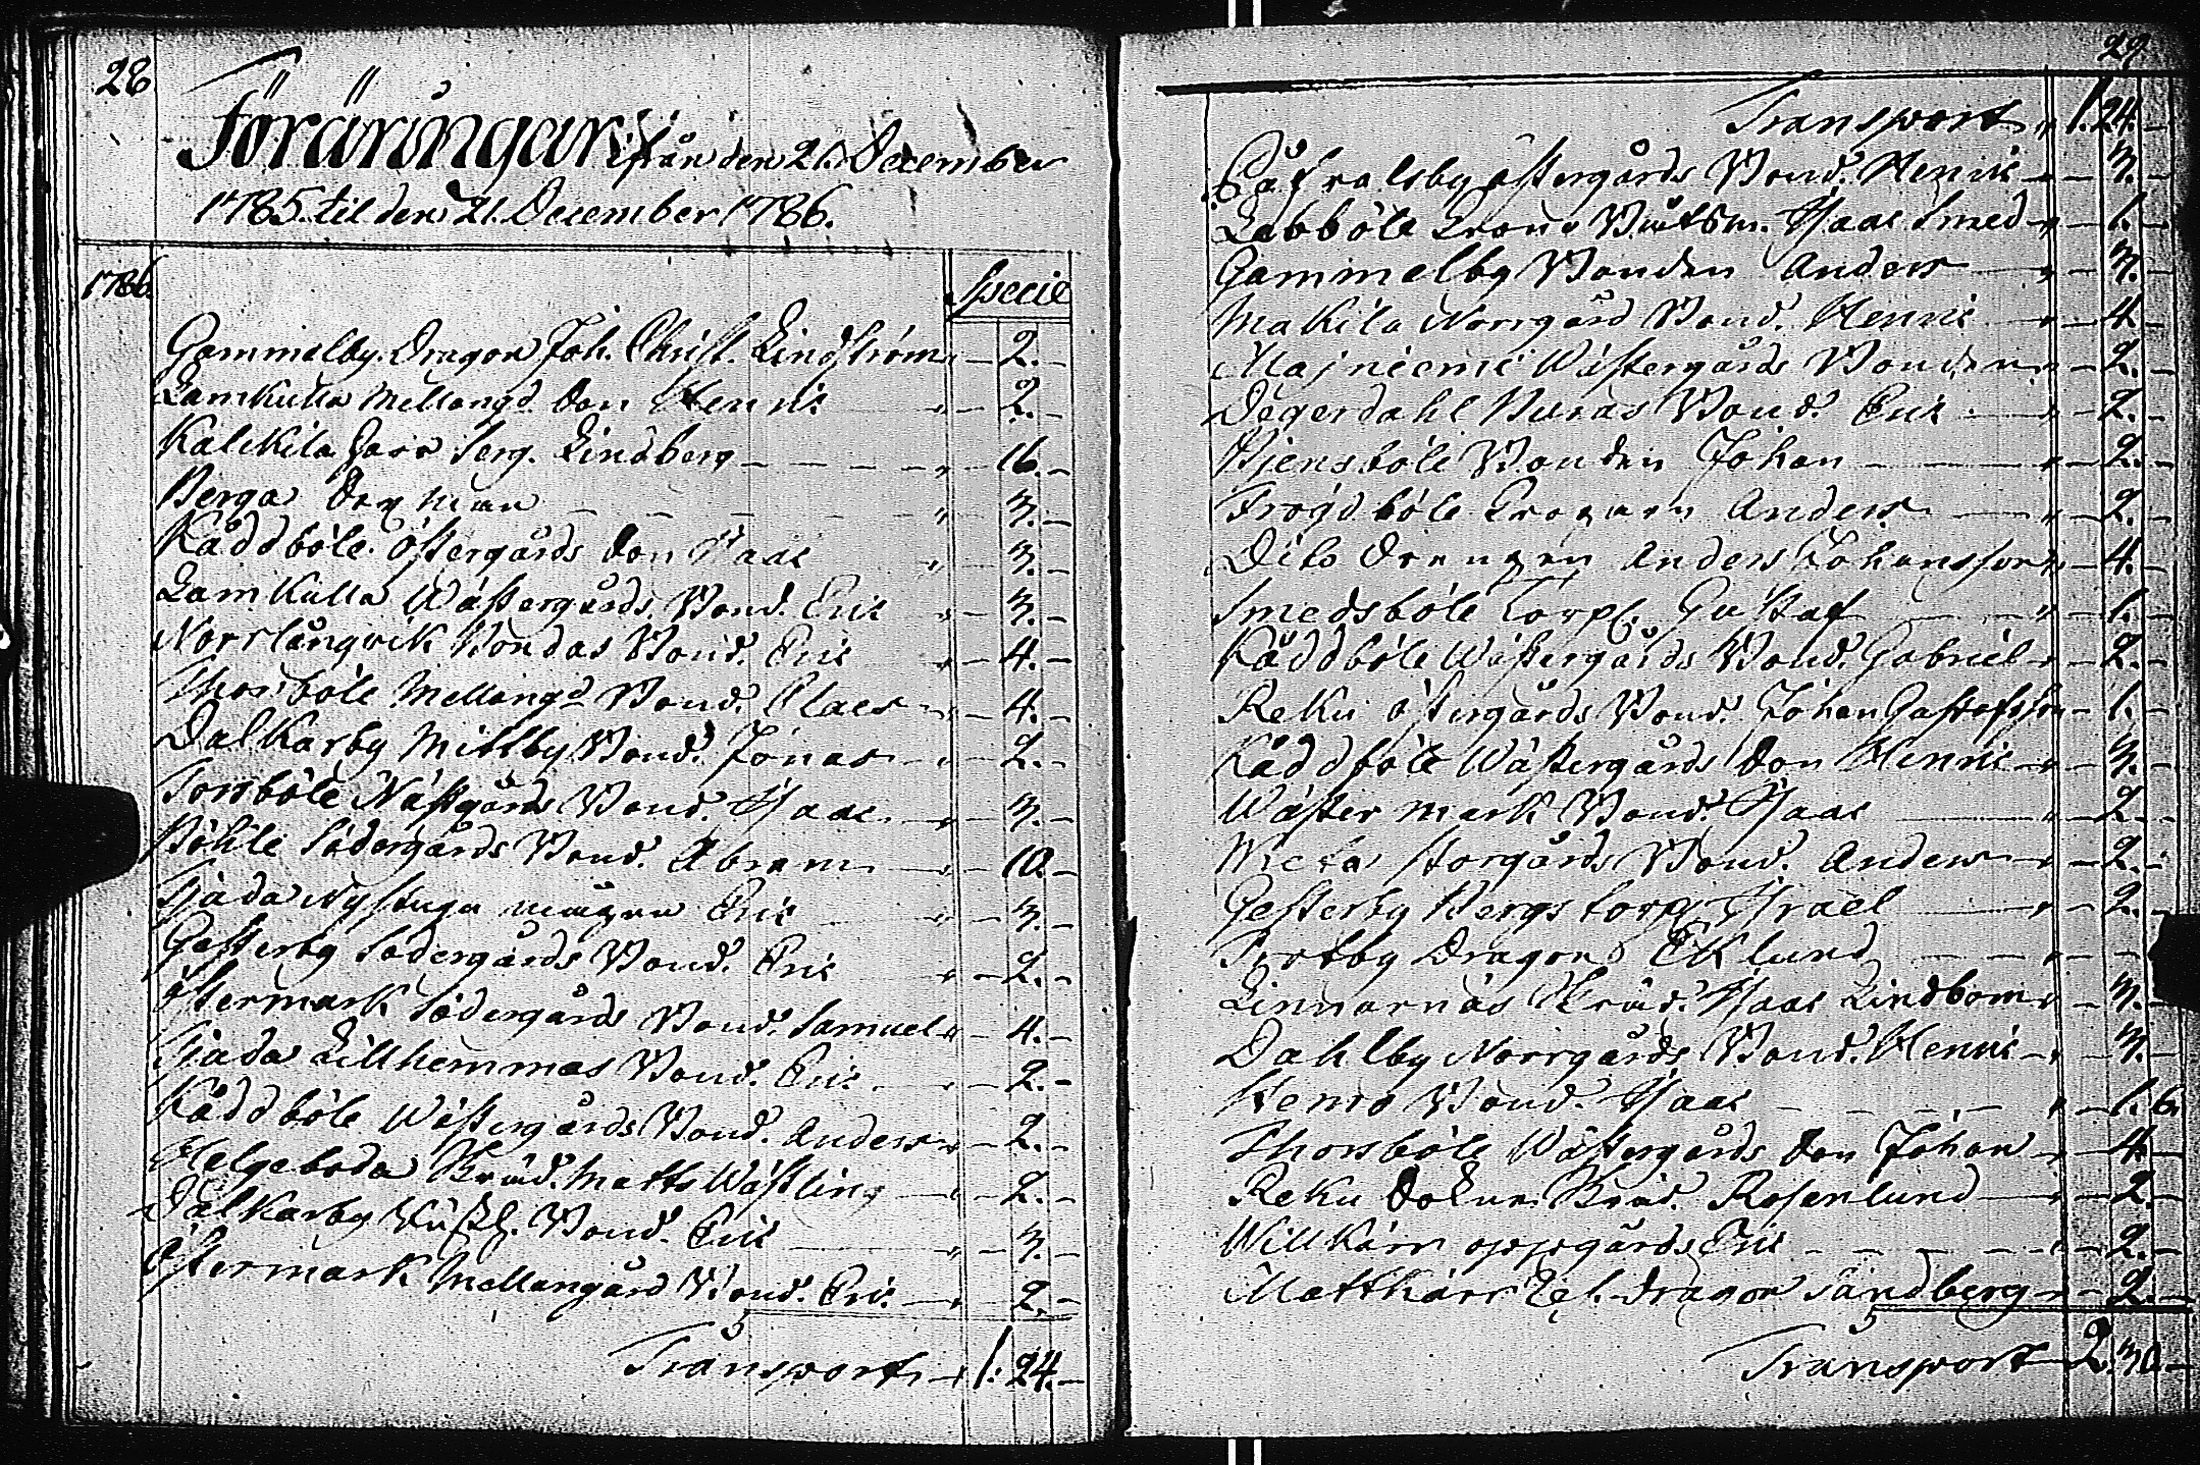 28
Föräringar ifrån den 21. December
1785. til den 21. December 1786.
1786.
Specie
Gammelby. Dragon Joh. Christ. Lindström " — 2. —
Lamkulla Mellangd. Son Henric " — 2. —
Kalckila Herr Serg. Lindberg — — — — " — 16. —
Berga — — — — " — 3. —
Råddböle östergårds Son Isaac " — 3. —
Lamkulla Wästergårds Bond. Eric " — 3. —
Norrlångwik Bondas Bond. Eric " — 4. —
Thorsböle Mellangd Bond. Claes — " — 4. —
Dalkarby Mittlby Bond. Jonas — " — 2. —
Torsböle Nästgårds Bond. Isaac — " — 3. —
Böhle Södergårds Bond. Abram — " — 10. —
Tjäda Nystugu Eric — " — 3. —
Gesterby Södergårds Bond. Eric — " — 2. —
Östermark Södergårds Bond. Samuel " — 4. —
Tjäda Lillhemmas Bond. Eric — " — 2. —
Råddböle Wästergårds Bond. Anders " — 2. —
Helgeboda Matts Wästling — " — 2. —
Dalkarby Bond. Eric — " — 3. —
Östermark Mellangård Bond. Eric. — " — 2. —
Transport — " 1: 24. —
29
Transport " 1. 24. —
Påfvalsby östergårds Bond. Henric — " — 3. —
Labböle Båtsm. Isaac Smed — " — 1. —
Gammelby Bonden Anders — " — 3. —
Makila Norrgård Bond. Henric — " — 4. —
Majniemi Wästergårds Bonden " — 2. —
Degerdahl Bond. Eric — " — 2. —
Bjensböle Bonden Johan — " — 2. —
Frögdböle Anders — " — 2. —
Dito Drengen Anders Johansson " — 4. —
Smedsböle Torp. Gustaf — " — 1. —
Råddböle Wästergårds Bond. Gabriel " — 2. —
Reku östergårds Bond. Johan Gustafsson — 1. —
Råddböle Wästergårds Son Henric — " — 3. —
Wästermark Bond. Isaac — " — 2. —
Storgårds Bond. Anders — " — 2. —
Gesterby Bergs torp. Israel — " — 2. —
Dragon Eklund — — — —
Linnarnäs Isaac Lindbom " — 3. —
Dahlby Norrgårds Bond. Henric — " — 3. —
Kemo Bond. Isaac — — — — " — 1. 6.
Thorsböle Wästergårds Son Johan — " — 4. —
Reku Rosenlund — " — 2. —
Willkärr oppgårds Eric — — — — " — 2. —
Mattkärr Dragon Sandberg — " — 2. —
Transport — 2. 30 —